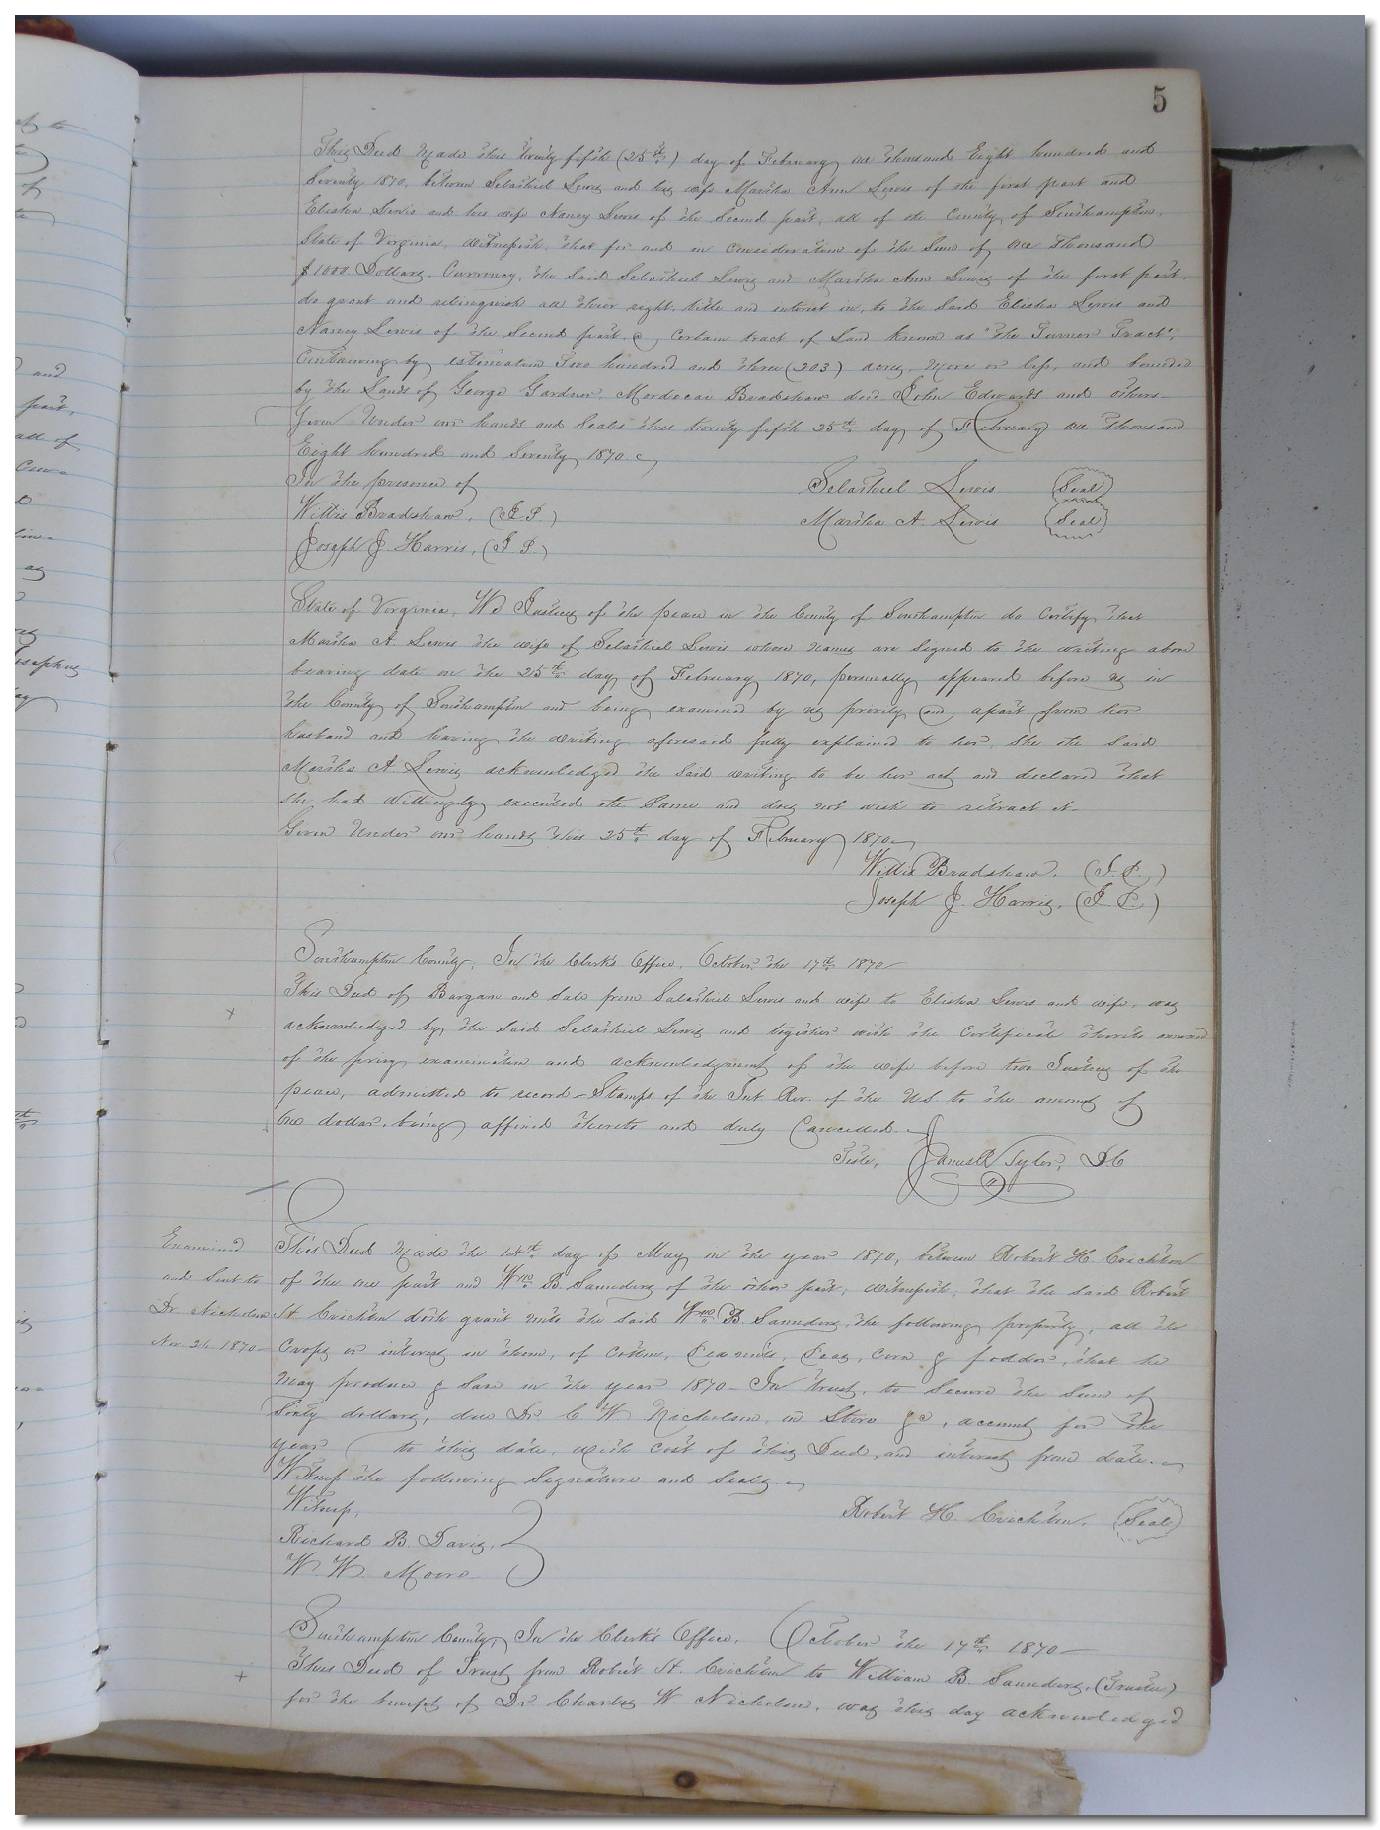 5
This Deed Made this twenty fifth (25th) day of February one thousand Eight hundred and
Seventy 1870, between Selathiel Lewis and his wife Martha Ann Lewis of the first part and
Elisha Lewis and his wife Nancy Lewis of the Second part, all of the County of Southampton,
State of Virginia, witnesseth, that for and in consideration of the Sum of one thousand
$1000 Dollars Currency, the Said Selathiel Lewis and Martha Ann Lewis of the first part
do grant and relinquish all their right, title and interest in, to the Said Elisha Lewis and
Nancy Lewis of the Second part, a, certain tract of Land known as "the Turner Tract",
Containing by estimation Two hundred and three (203) acres, More or less, and bounded
by the Lands of George Gardner, Mordecai Bradshaw decd John Edwards and others
Given Under our hands and Seals this twenty fifth 25th day of February one thousand
Eight hundred and Seventy 1870
In the presence of
Selathiel Lewis (Seal)
Willis Bradshaw, (J.P.)
Martha A. Lewis (Seal)
Joseph J. Harris, (J P)
State of Virginia, We Justices of the peace in the County of Southampton do Certify that
Martha A Lewis the wife of Selathiel Lewis whose names are Signed to the writing above
bearing date on the 25th day of February 1870, personally appeared before us in
the County of Southampton and being examined by us privily and apart from her
husband and having the writing aforesaid fully explained to her, She the Said
Martha A. Lewis acknowledged the Said writing to be her act and declared that
She had willingly executed the Same and does not wish to retract it
Given Under our hands this 25th day of February 1870
Willis Bradshaw. (J.P.)
Joseph J. Harris, (J P)
Southampton County, In the Clerk's Office, October the 17th 1870
This Deed of Bargain and Sale from Salathiel Lewis and wife to Elisha Lewis and wife, was
acknowledged by the Said Selathiel Lewis and together with the Certificate thereto annexed
of the privy examination and acknowledgment of the wife before two Justices of the
peace, admitted to record - Stamps of the Int. Rev. of the U.S. to the amount of
One dollar, being affixed thereto and duly Cancelled.
Teste, James R Tyler, D.C
Examined
and Sent to
Dr Nicholson
Nov. 24 1870
This Deed Made the 14th day of May in the year 1870, between Robert H. Crichton
of the one part and Wm B. Saunders of the other part, witnesseth, that the said Robert
H. Crichton doth grant unto the said Wm B. Saunders, the following property, all his
Crops or interest in them, of Cotton, Peanuts, Peas, Corn & fodder, that he
May produce & Save in the year 1870 - In trust, to Secure the Sum of
Sixty dollars, due Dr. C W Nicholson, in Store &c, account for the
year to this date, with cost of this Deed, and interest from date.
Witness the following Signature and Seals
Witness,
Robert H. Crichton. (Seal)
Richard B. Davis.
W. W. Moore
Southampton County, In the Clerk's Office, October the 17th 1870
This Deed of Trust from Robert H. Crichton to William B. Saunders, (Trustee)
for the benefit of Dr. Charles W Nicholson, was this day acknowledged